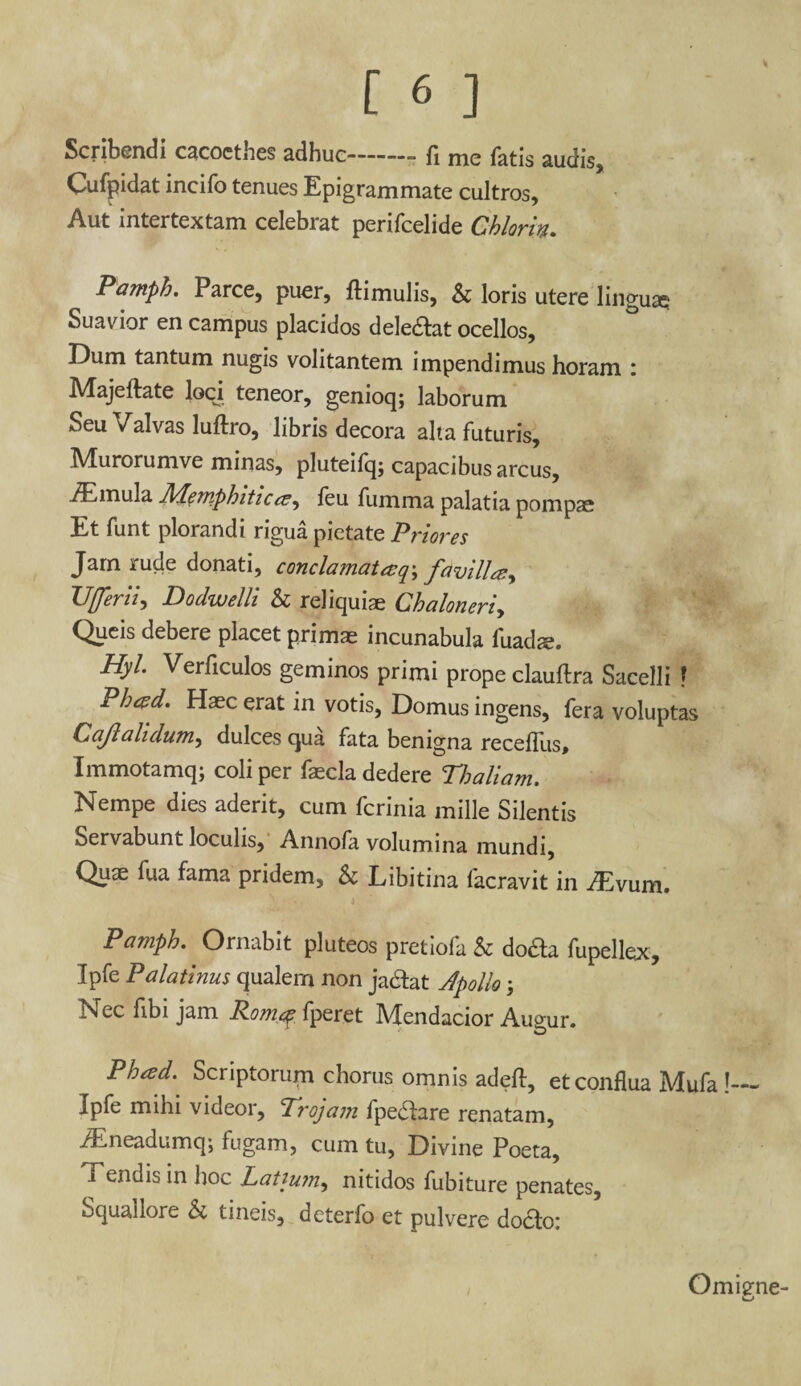 [ 6 ]
Scribendi cacoethes adhuc------- ſi me fatis audis,
Cuſpidat inciſo tenues Epigrammate cultros,
Aut intertextam celebrat periſcelide Chlorin.
Pamph. Parce, puer, ſtimulis, & loris utere linguæ
Suavior en campus placidos delectat ocellos,
Dum tantum nugis volitantem impendimus horam :
Majeſtate loci teneor, genioq; laborum
Seu Valvas luſtro, libris decora alta futuris,
Murorumve minas, pluteiſq; capacibus arcus,
Æmula Memphiticæ, ſeu ſumma palatia pompæ
Et ſunt plorandi riguâ pietate Priores
Jam rude donati, conclamatæq; favillæ,
Uſſerii, Dodwelli & reliquiæ Chaloneri,
Queis debere placet primæ incunabula ſuadæ.
Hyl. Verſiculos geminos primi prope clauſtra Sacelli !
Phæd. Hæc erat in votis, Domus ingens, ſera voluptas
Caſtalidum, dulces quà fata benigna receſſus,
Immotamq; coli per ſæcla dedere Thaliam.
Nempe dies aderit, cum ſcrinia mille Silentis
Servabunt loculis, Annoſa volumina mundi,
Quæ ſua fama pridem, & Libitina ſacravit in Ævum.
Pamph. Ornabit pluteos pretioſa & docta ſupellex,
Ipſe Palatinus qualem non jactat Apollo ;
Nec ſibi jam Romæ ſperet Mendacior Augur.
Phæd. Scriptorum chorus omnis adeſt, et conflua Muſa !—
Ipſe mihi videor, Trojam ſpectare renatam,
Æneadumq; fugam, cum tu, Divine Poeta,
Tendis in hoc Latium, nitidos ſubiture penates,
Squallore & tineis, deterſo et pulvere docto:
Omigne-